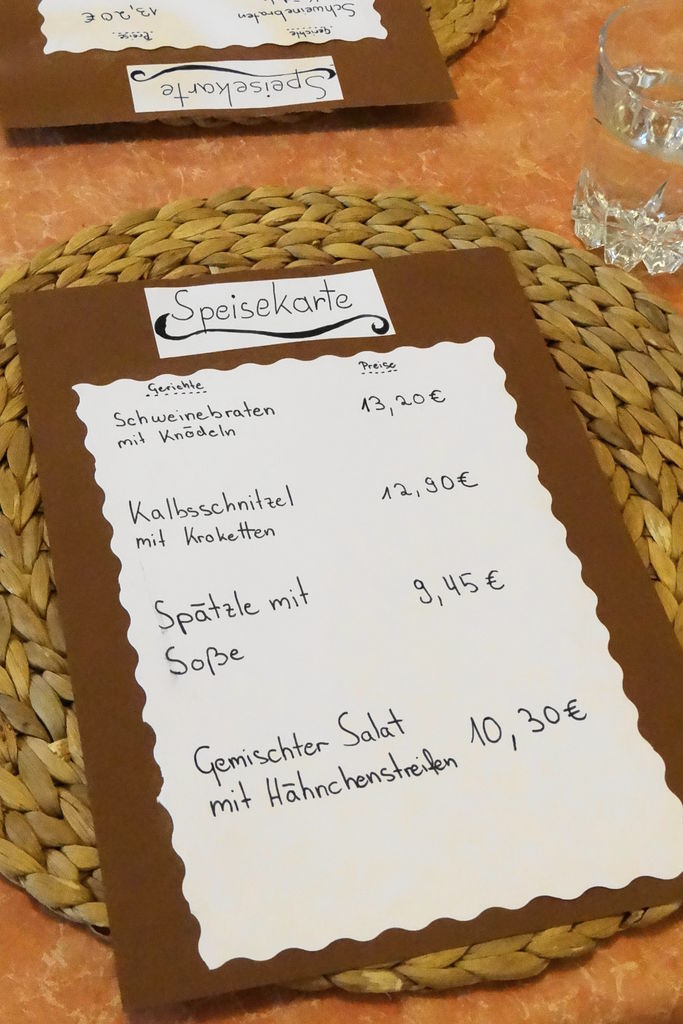 Schweinebraten
13,20 €
Gerichte
Preise
Speisekarte
Speisekarte
Gerichte Preise
Schweinebraten 13,20 €
mit Knödeln
Kalbsschnitzel 12,90 €
mit Kroketten
Spätzle mit 9,45 €
Soße
Gemischter Salat 10,30 €
mit Hähnchenstreifen